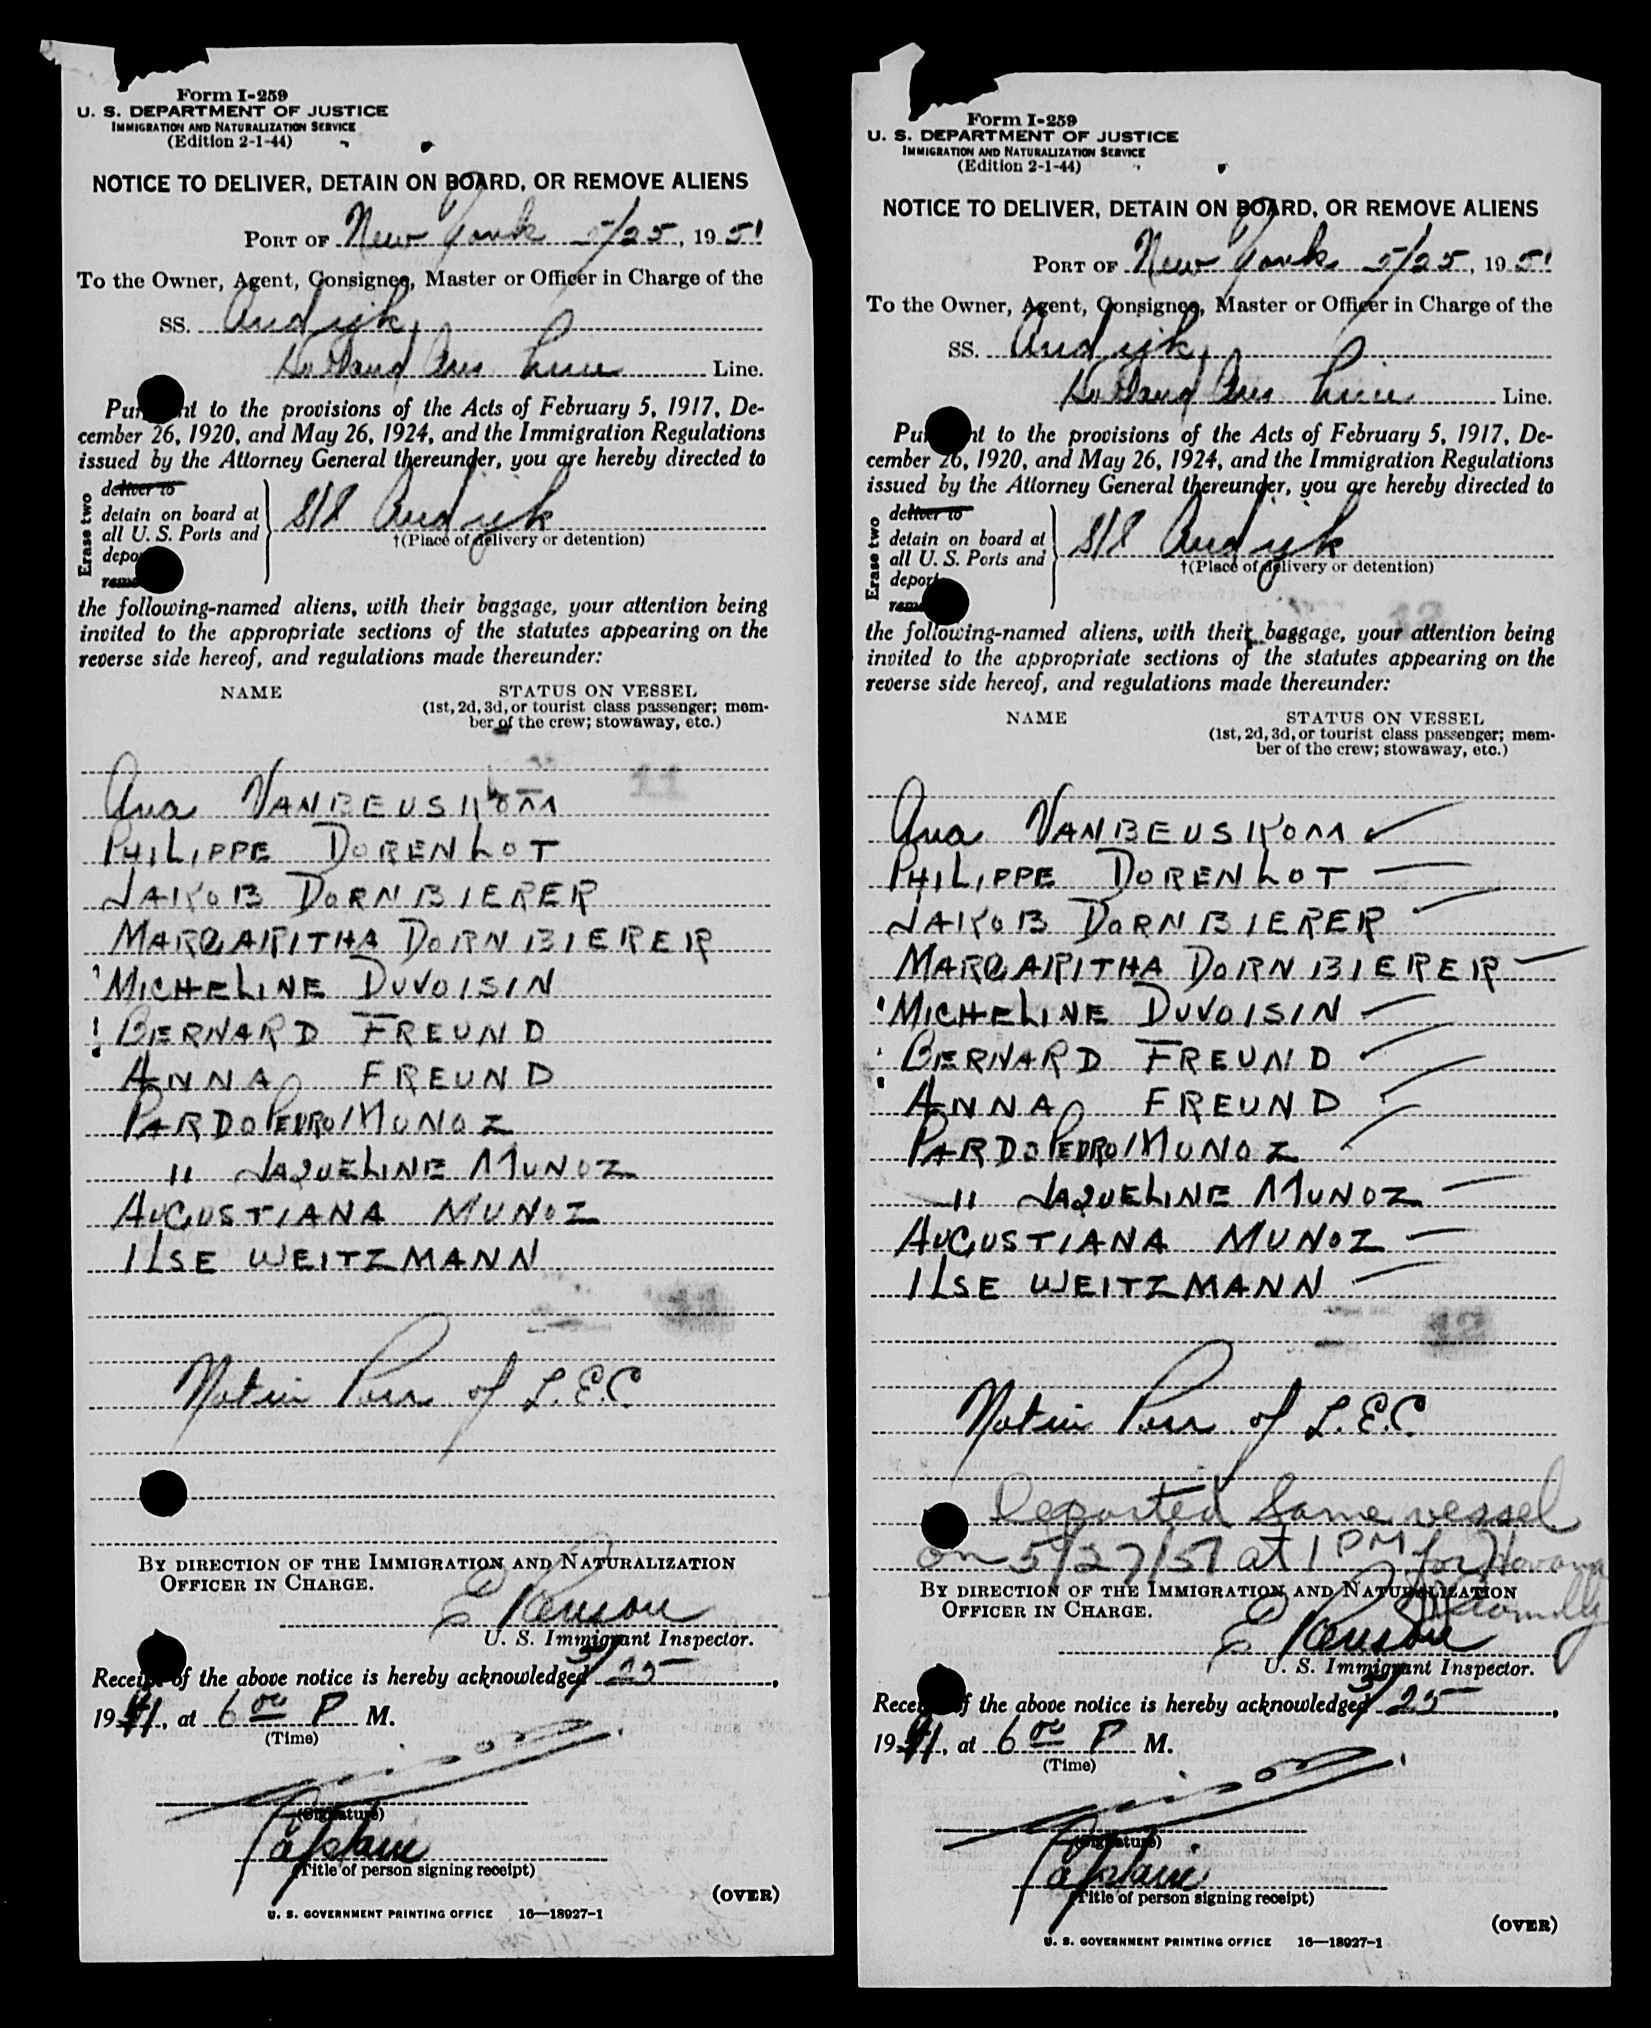 Form I-259
U. S. DEPARTMENT OF JUSTICE
IMMIGRATION AND NATURALIZATION SERVICE
(Edition 2-1-44)
NOTICE TO DELIVER, DETAIN ON BOARD, OR REMOVE ALIENS
PORT OF New York 5/25, 1951
To the Owner, Agent, Consignee, Master or Officer in Charge of the
SS. Andijk
Holland Am Line Line.
to the provisions of the Acts of February 5, 1917, De-
cember 26, 1920, and May 26, 1924, and the Immigration Regulations
issued by the Attorney General thereunder, you are hereby directed to
Erase two
deliver to
detain on board at
all U. S. Ports and
S/S Andijk
†(Place of delivery or detention)
the following-named aliens, with their baggage, your attention being
invited to the appropriate sections of the statutes appearing on the
reverse side hereof, and regulations made thereunder:
NAME STATUS ON VESSEL
(1st, 2d, 3d, or tourist class passenger; mem-
ber of the crew; stowaway, etc.)
11
Ana VANBEUSKOM
PHILIPPE DORENLOT
JAKOB DORNBIERER
MARGARITHA DORNBIERER
MICHELINE DUVOISIN
BERNARD FREUND
ANNA FREUND
PARDO PEDRO MUNOZ
" JAQUELINE MUNOZ
AUGUSTIANA MUNOZ
ILSE WEITZMANN
11
Not in Poss of L.E.C.
BY DIRECTION OF THE IMMIGRATION AND NATURALIZATION
OFFICER IN CHARGE.
U. S. Immigrant Inspector.
Receipt of the above notice is hereby acknowledged 5/25,
19 51, at 6 00 P M.
(Time)
(Signature)
Captain
(Title of person signing receipt)
(OVER)
U. S. GOVERNMENT PRINTING OFFICE 16—18927-1
Form I-259
U. S. DEPARTMENT OF JUSTICE
IMMIGRATION AND NATURALIZATION SERVICE
(Edition 2-1-44)
NOTICE TO DELIVER, DETAIN ON BOARD, OR REMOVE ALIENS
PORT OF New York 5/25, 1951
To the Owner, Agent, Consignee, Master or Officer in Charge of the
SS. Andijk
Holland Am Line Line.
to the provisions of the Acts of February 5, 1917, De-
cember 26, 1920, and May 26, 1924, and the Immigration Regulations
issued by the Attorney General thereunder, you are hereby directed to
Erase two
deliver to
detain on board at
all U. S. Ports and
S/S Andijk
†(Place of delivery or detention)
12
the following-named aliens, with their baggage, your attention being
invited to the appropriate sections of the statutes appearing on the
reverse side hereof, and regulations made thereunder:
NAME STATUS ON VESSEL
(1st, 2d, 3d, or tourist class passenger; mem-
ber of the crew; stowaway, etc.)
Ana VANBEUSKOM
PHILIPPE DORENLOT
JAKOB DORNBIERER
MARGARITHA DORNBIERER
MICHELINE DUVOISIN
BERNARD FREUND
ANNA FREUND
PARDO PEDRO MUNOZ
" JAQUELINE MUNOZ
AUGUSTIANA MUNOZ
ILSE WEITZMANN
12
Not in Poss of L.E.C.
Departed Same vessel
on 5/27/51 at 1 PM for Havana
BY DIRECTION OF THE IMMIGRATION AND NATURALIZATION
OFFICER IN CHARGE.
U. S. Immigrant Inspector.
Receipt of the above notice is hereby acknowledged 5/25,
19 51, at 6 00 P M.
(Time)
(Signature)
Captain
(Title of person signing receipt)
(OVER)
U. S. GOVERNMENT PRINTING OFFICE 16—18927-1